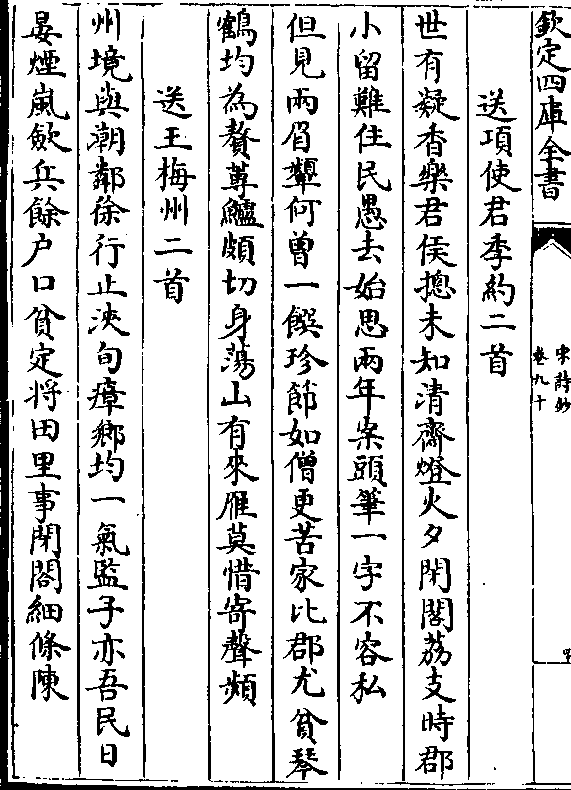 欽定四庫全書
宋詩鈔
卷九十
送項使君季約二首
世有凝香樂君侯摠未知清齋燈火夕閉閣荔支時郡
小留難住民愚去始思兩年案頭筆一字不容私
但見兩眉顰何曾一饌珍節如僧更苦家比郡尤貧琴
鶴均為贅蓴鱸頗切身蕩山有來雁莫惜寄聲頻
送王梅州二首
州境與潮鄰徐行止浹旬瘴鄉均一氣蜑子亦吾民日
晏煙嵐斂兵餘户口貧定將田里事閉閤細條陳